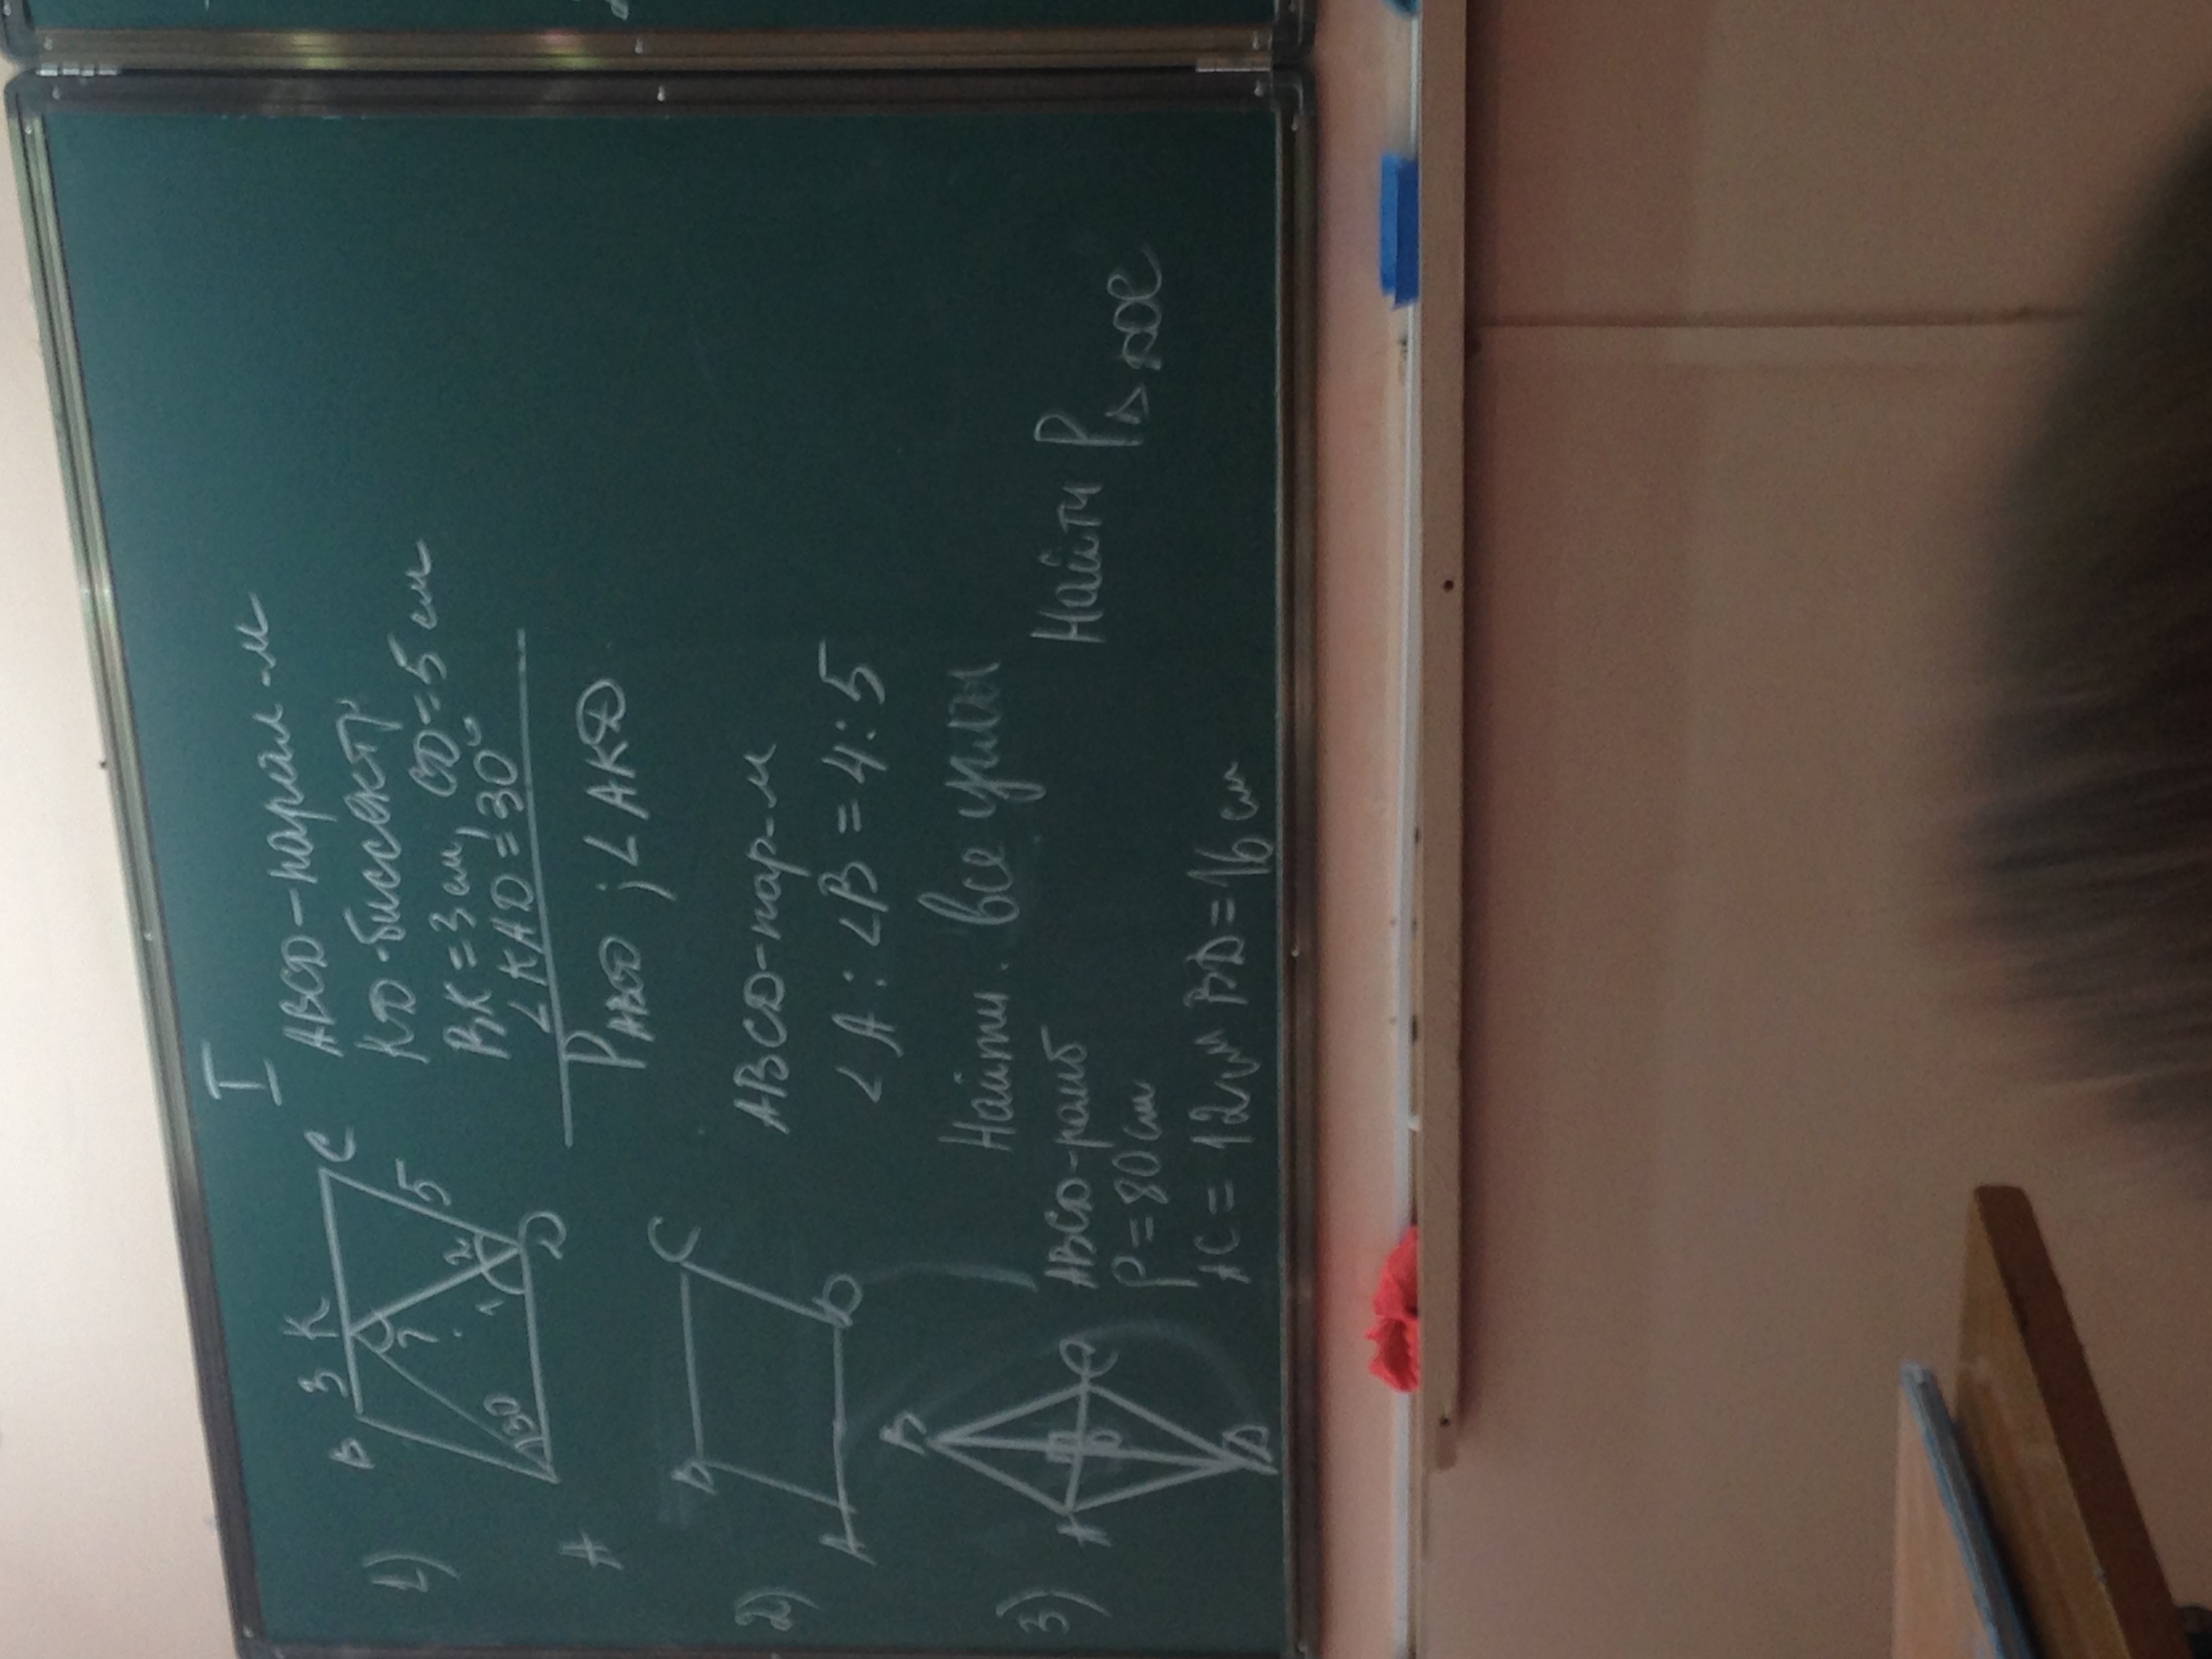 I
1) B 3 K C
ABCD-парал-м
KD-биссектр
BK = 3 см, CD = 5 см
∠KAD = 30°
? 1 2 5
30
A D
P ABCD ; ∠AKD
2) B C
A D
ABCD-пар-м
∠A : ∠B = 4 : 5
Найти. все углы
3) B
A C
O
D
ABCD-ромб
P = 80 см
AC = 12 см BD = 16 см
Найти P△